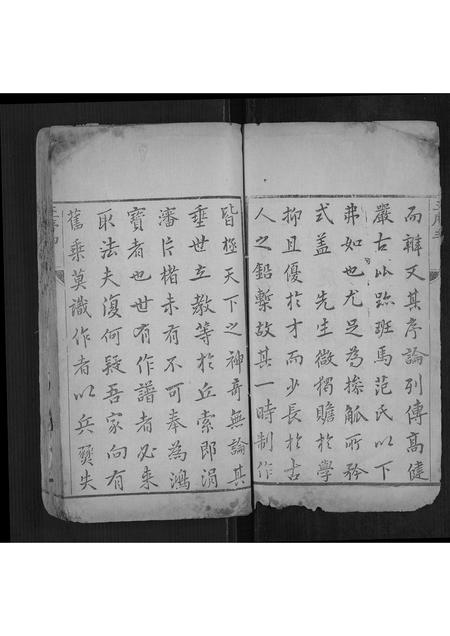 而辭又其序論列傳高健
嚴古以跡班馬范氏以下
弗如也尤足為操觚所矜
式蓋 先生微獨贍於學
抑且優於才而少長於古
人之鉛槧故其一時制作
皆極天下之神奇無論其
垂世立教等於丘索即涓
瀋片楮未有不可奉為鴻
寶者也世有作譜者必來
取法夫復何疑吾家向有
舊乘莫識作者以兵燹失